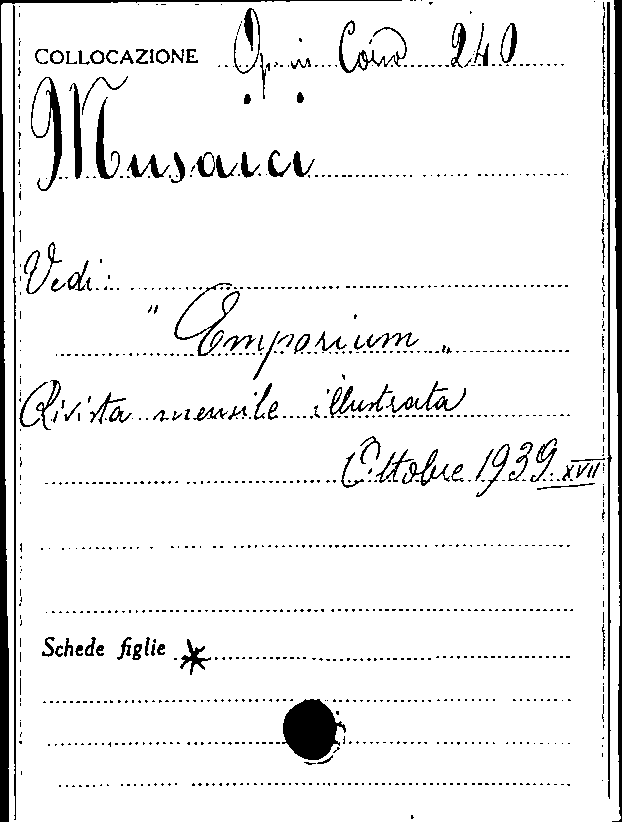 COLLOCAZIONE Op. in Corso 240
Musaici
Vedi:
" Emporium "
Rivista mensile illustrata
Ottobre 1939 XVII
Schede figlie *